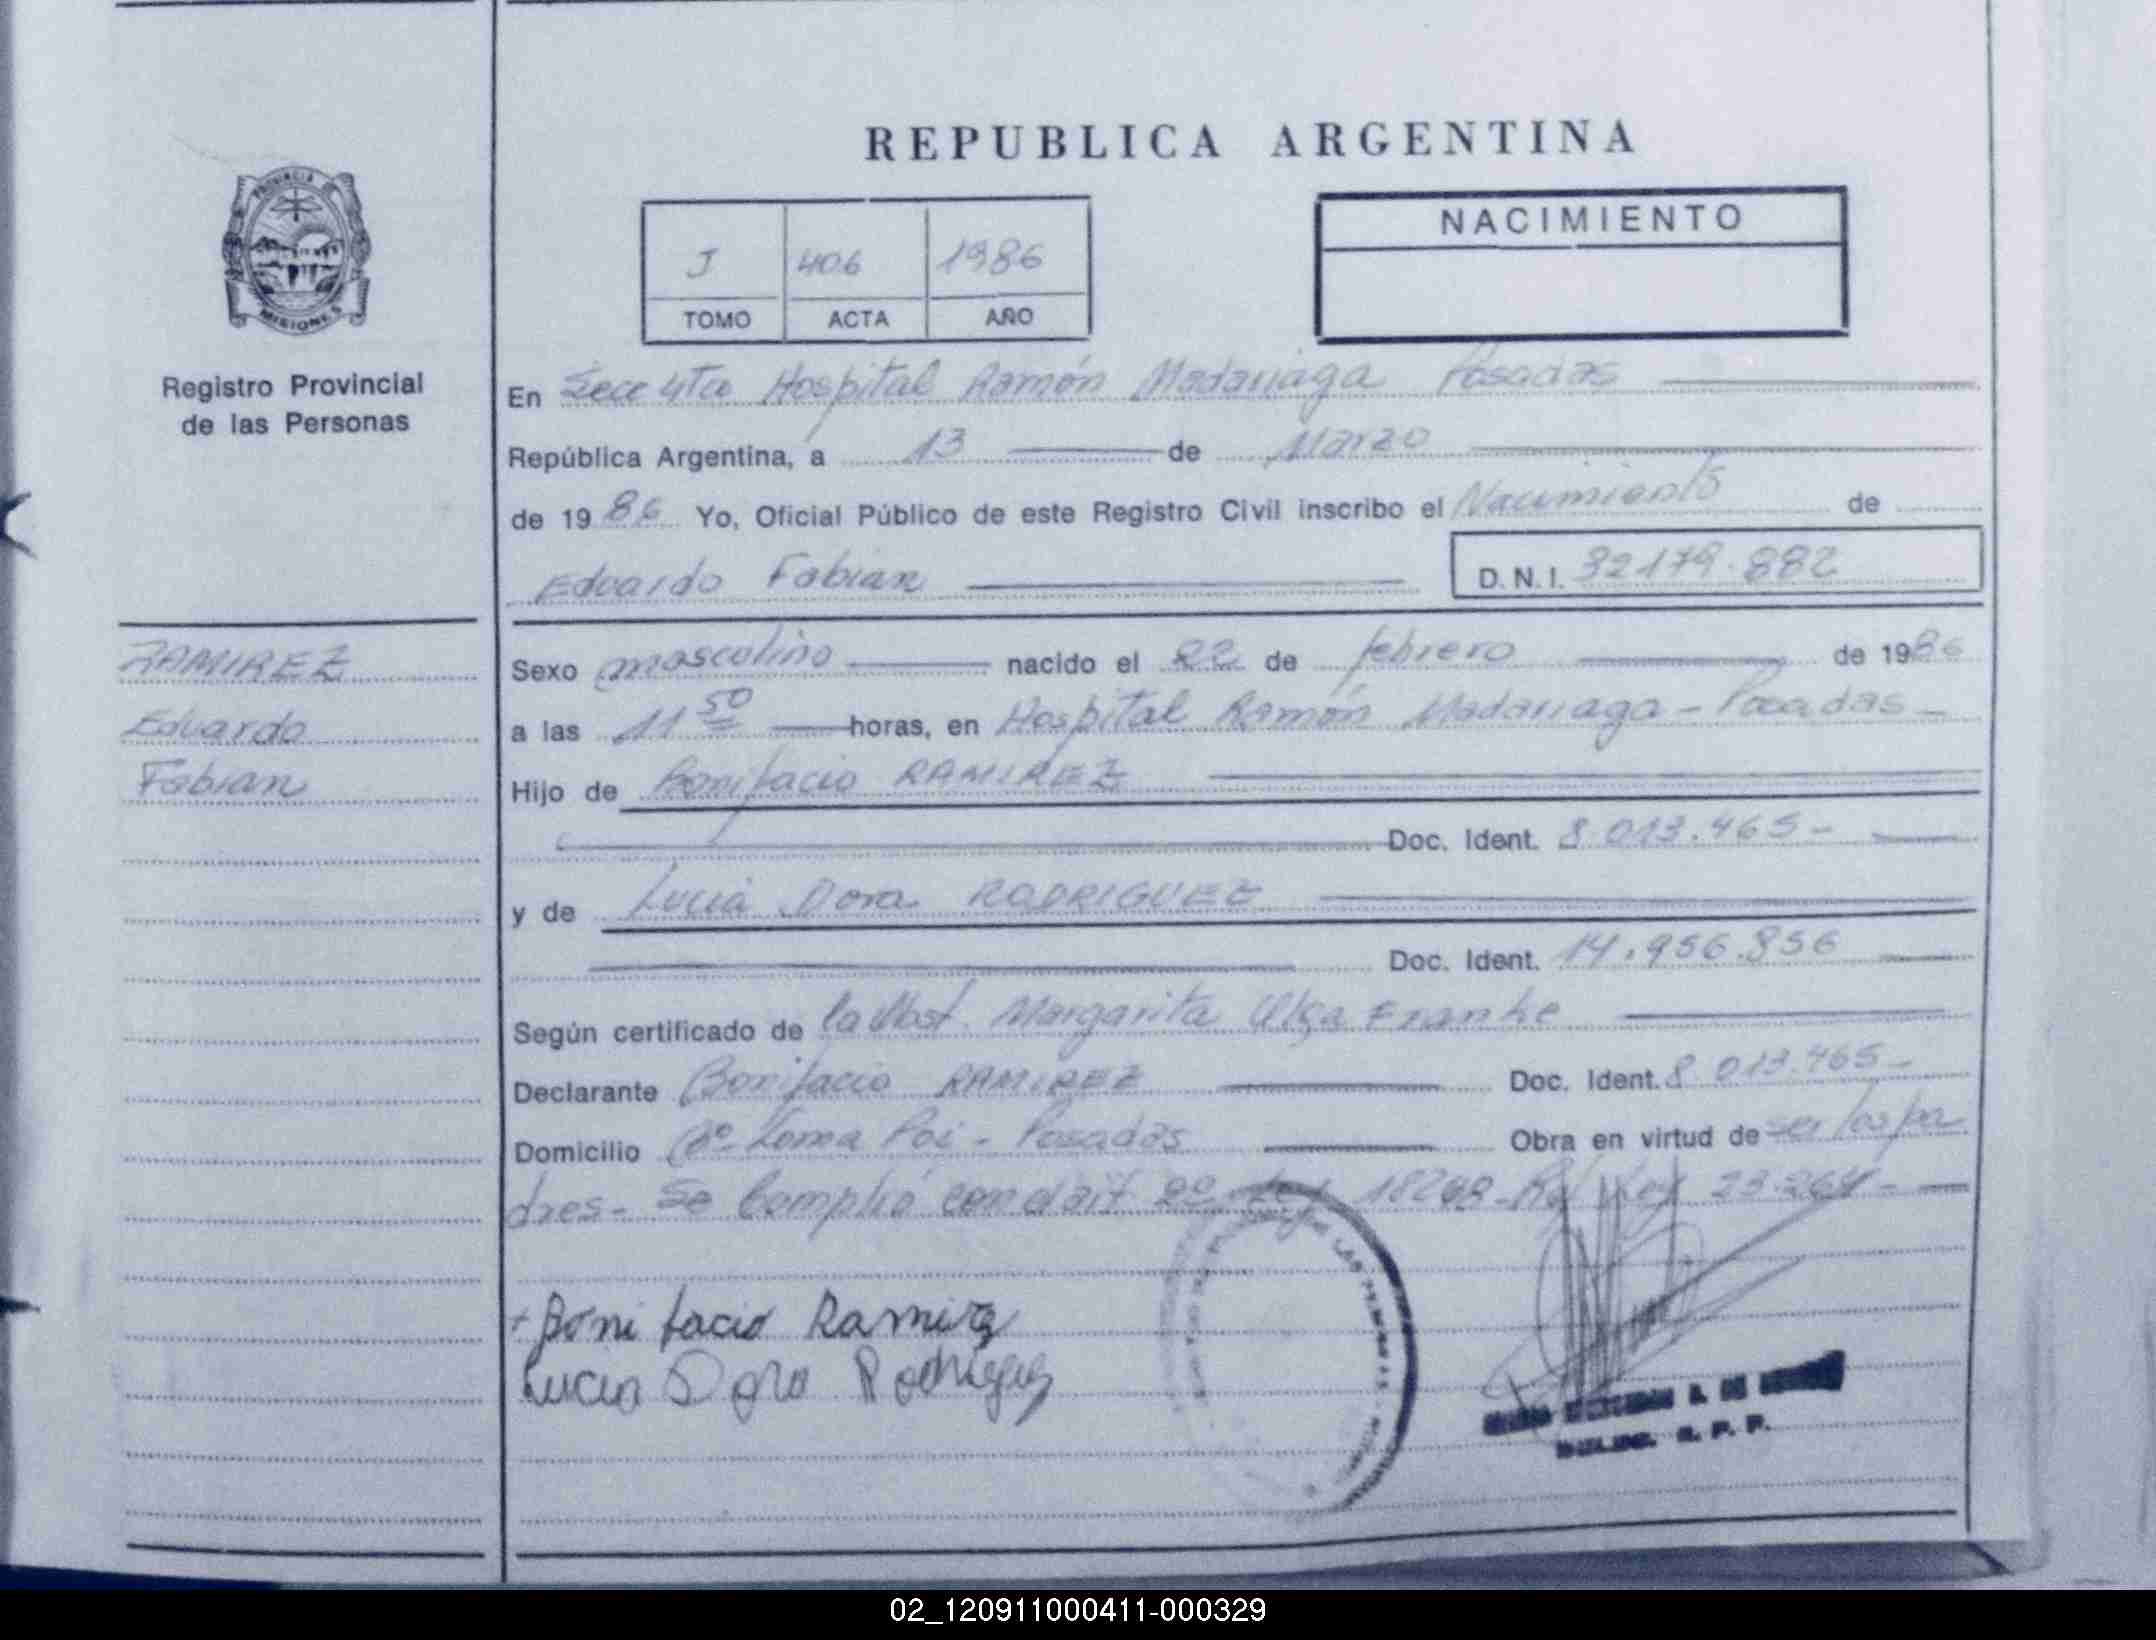 REPUBLICA ARGENTINA
PROVINCIA DE
MISIONES
Registro Provincial
de las Personas
J 406 1986
TOMO ACTA AÑO
NACIMIENTO
En Secc 4ta Hospital Ramón Madariaga Posadas
República Argentina, a 13 de Marzo
de 1986 Yo, Oficial Público de este Registro Civil inscribo el Nacimiento de
Eduardo Fabian D.N.I. 32179.882
RAMIREZ
Eduardo
Fabian
Sexo masculino nacido el 22 de febrero de 1986
a las 11 50 horas, en Hospital Ramón Madariaga - Posadas -
Hijo de Bonifacio RAMIREZ
Doc. Ident. 8 013.465 -
y de Lucia Dora RODRIGUEZ
Doc. Ident. 14.956.856
Según certificado de la Obst. Margarita Olga Franke
Declarante Bonifacio RAMIREZ Doc. Ident. 8 013.465 -
Domicilio Bº Loma Poi - Posadas Obra en virtud de ser los pa
dres - Se Cumplió con el art 2º Ley 18248 - Ley 23.264 -
+ Bonifacio Ramirez
Lucia Dora Rodriguez
02_120911000411-000329